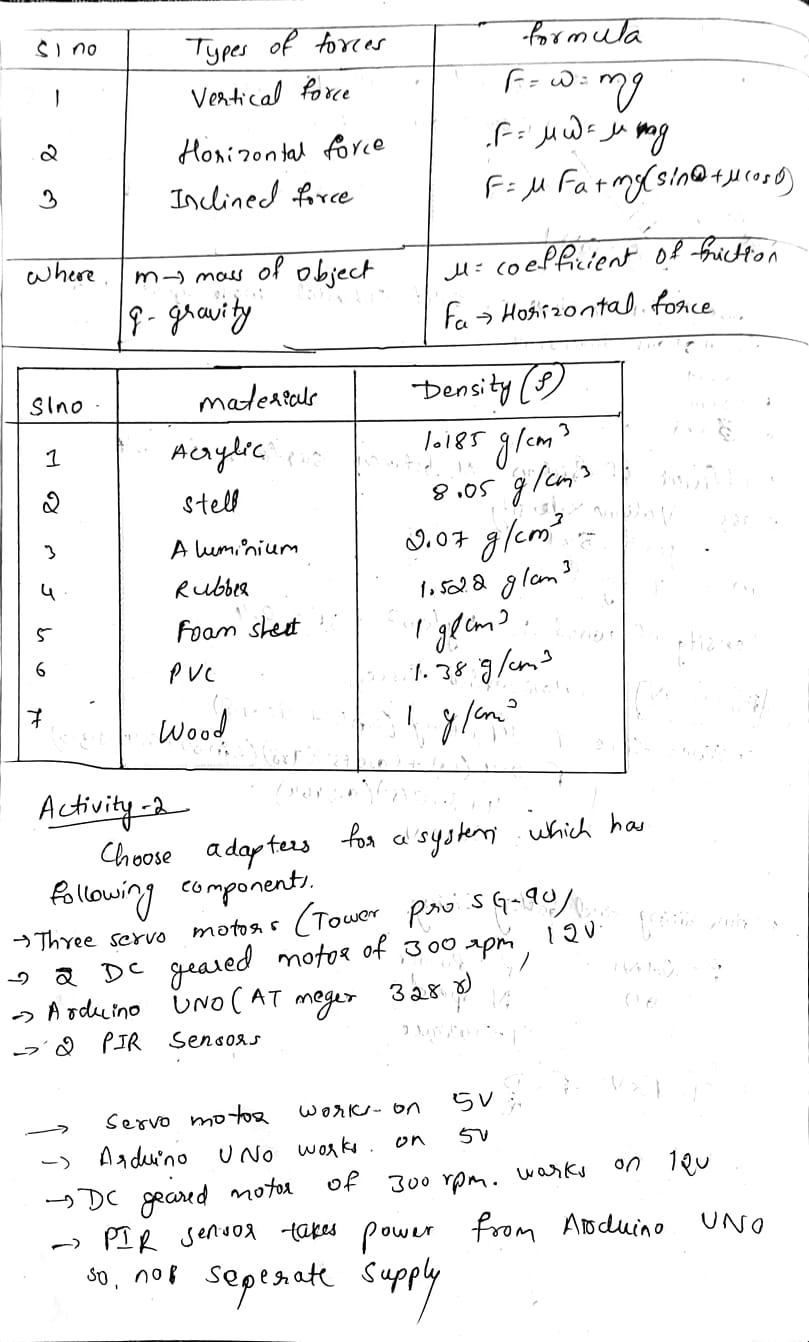 Sl no Types of forces formula
1 Vertical force F = W = mg
2 Horizontal force F = μW = μ mg
3 Inclined force F = μ Fa + mg(sinθ + μcosθ)
where m → mass of object μ = coefficient of friction
g - gravity Fa → Horizontal force
Slno. materials Density (ρ)
1 Acrylic 1.185 g/cm³
2 stell 8.05 g/cm³
3 Aluminium 2.07 g/cm³
4 Rubber 1.522 g/cm³
5 Foam sheet 1 g/cm³
6 PVC 1.38 g/cm³
7 Wood 1 g/cm³
Activity-2
Choose adapters for a system which has
following components.
→ Three servo motors (Tower pro SG-90)
→ 2 DC geared motor of 300 rpm, 12V
→ Arduino UNO (AT meger 328 )
→ 2 PIR Sensors
→ Servo motor works on 5V
→ Arduino UNO works on 5V
→ DC geared motor of 300 rpm. works on 12V
→ PIR sensor takes power from Arduino UNO
so, not seperate supply